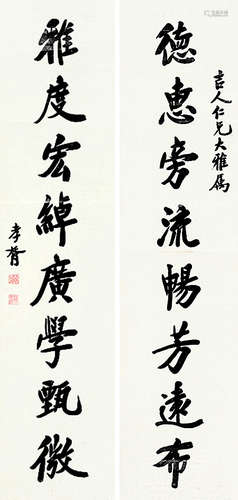 吉人仁兄大雅屬
德惠旁流暢芳遠布
雅度宏綽廣學甄微
孝胥